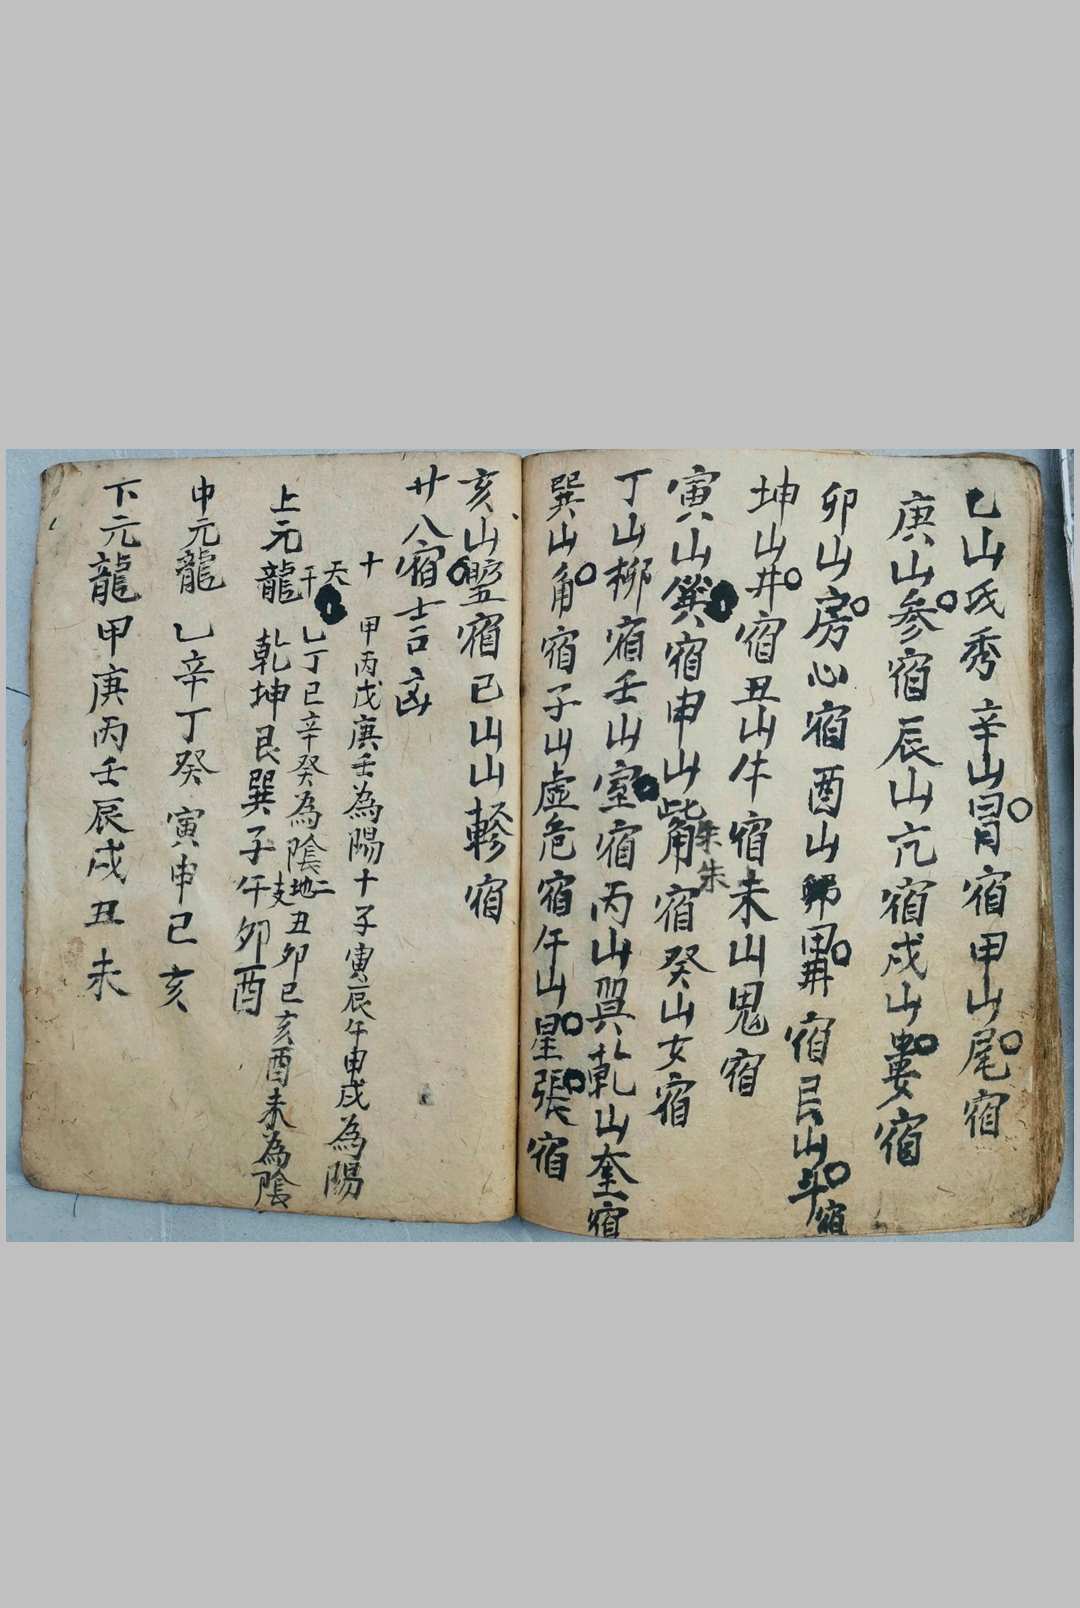 乙山氐秀辛山胃宿甲山尾宿
庚山参宿辰山亢宿戌山婁宿
卯山房心宿酉山昴畢宿艮山斗宿
坤山井宿丑山牛宿未山鬼宿
寅山箕宿申山觜宿癸山女宿
朱朱
丁山柳宿壬山室宿丙山翼乾山奎宿
巽山角宿子山虚危宿午山星張宿
亥山壁宿巳山山軫宿
廿八宿吉凶
十天干
甲丙戊庚壬為陽十子寅辰午申戌為陽
乙丁己辛癸為陰二地支丑卯巳亥酉未為陰
上元龍乾坤艮巽子午卯酉
中元龍乙辛丁癸寅申巳亥
下元龍甲庚丙壬辰戌丑未